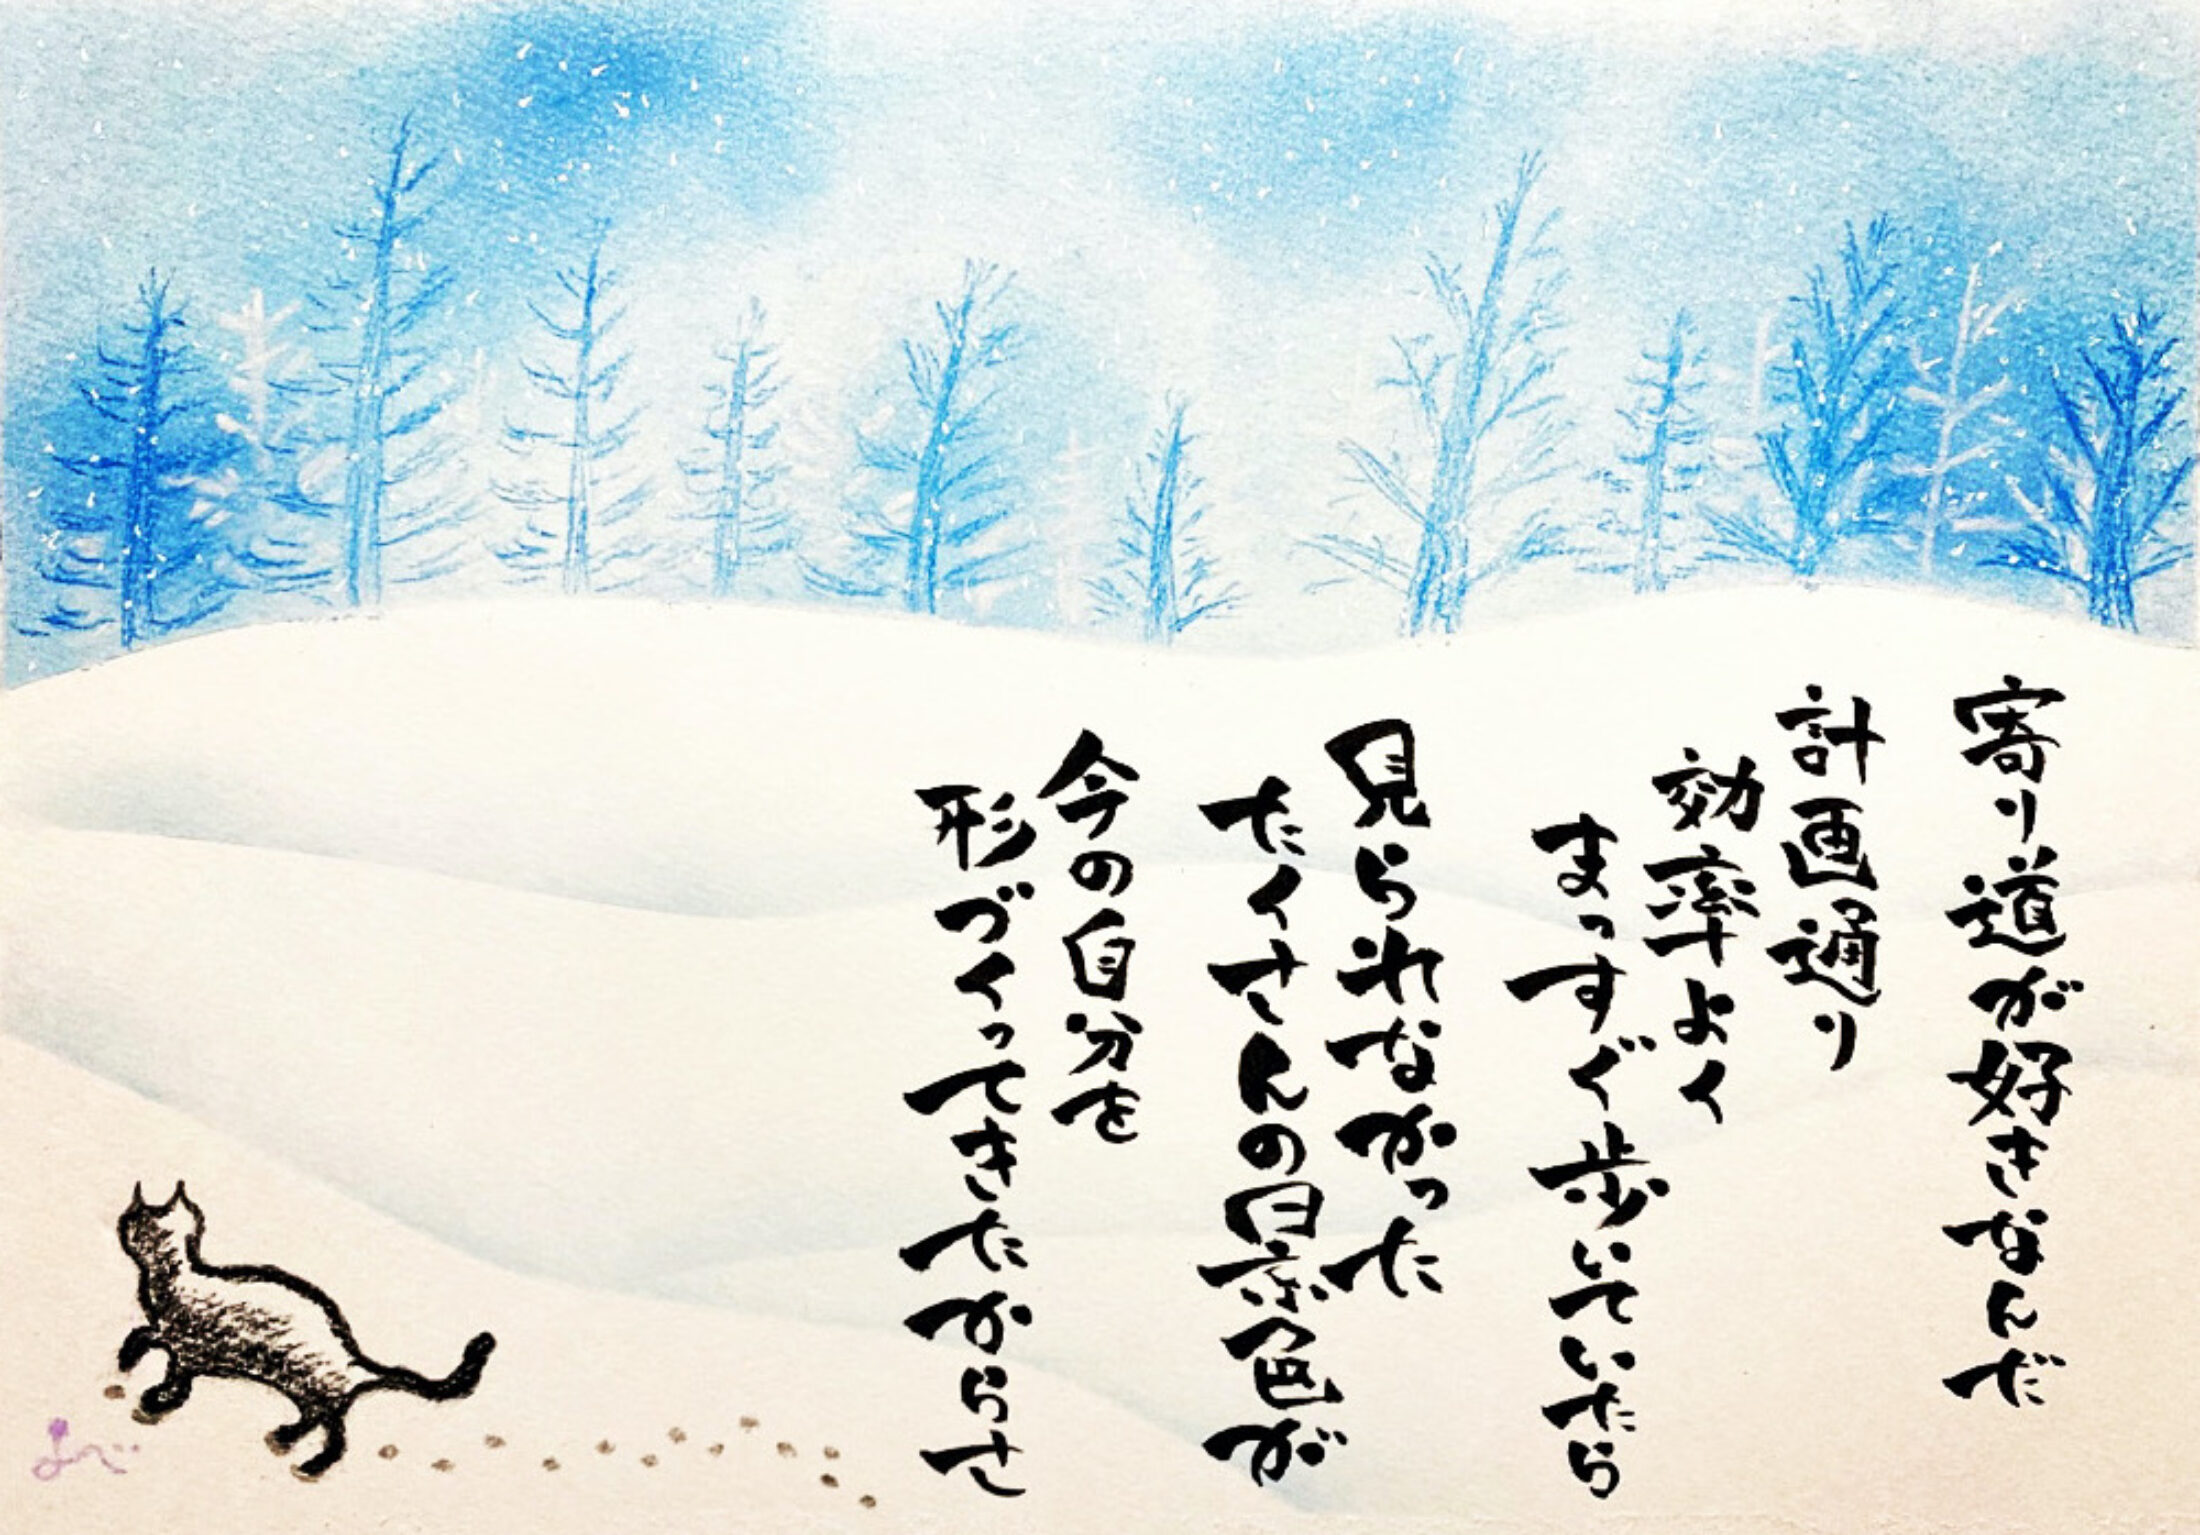 寄り道が好きなんだ
計画通り
効率よく
まっすぐ歩いていたら
見られなかった
たくさんの景色が
今の自分を
形づくってきたからさ